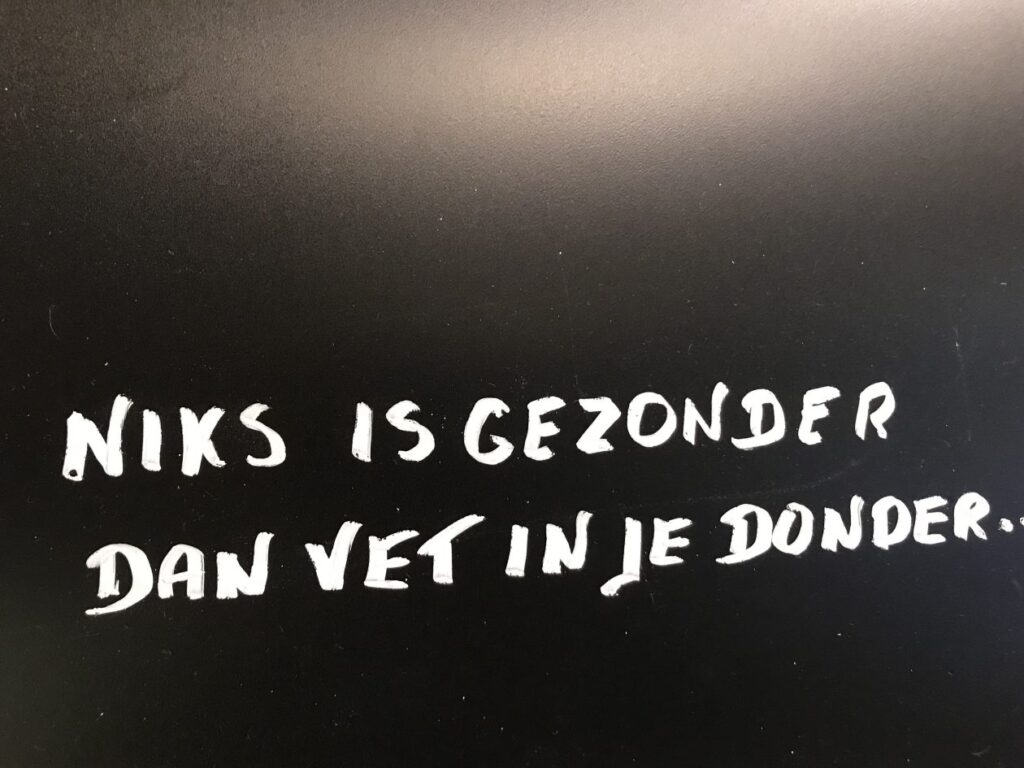 NIKS IS GEZONDER
DAN VET IN JE DONDER..